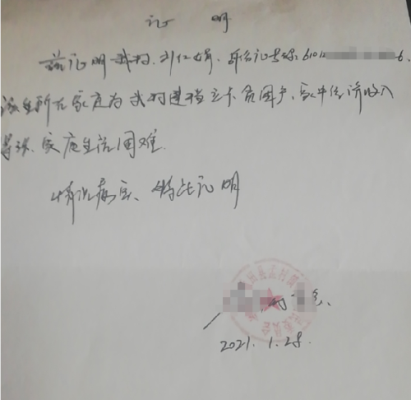 证 明
兹证明我村 刘 身份证号码 610
该生所在家庭为我村建档立卡贫困户,家中经济收入
家庭生活困难.
情况属实、特此证明
村委会
2021.1.28.